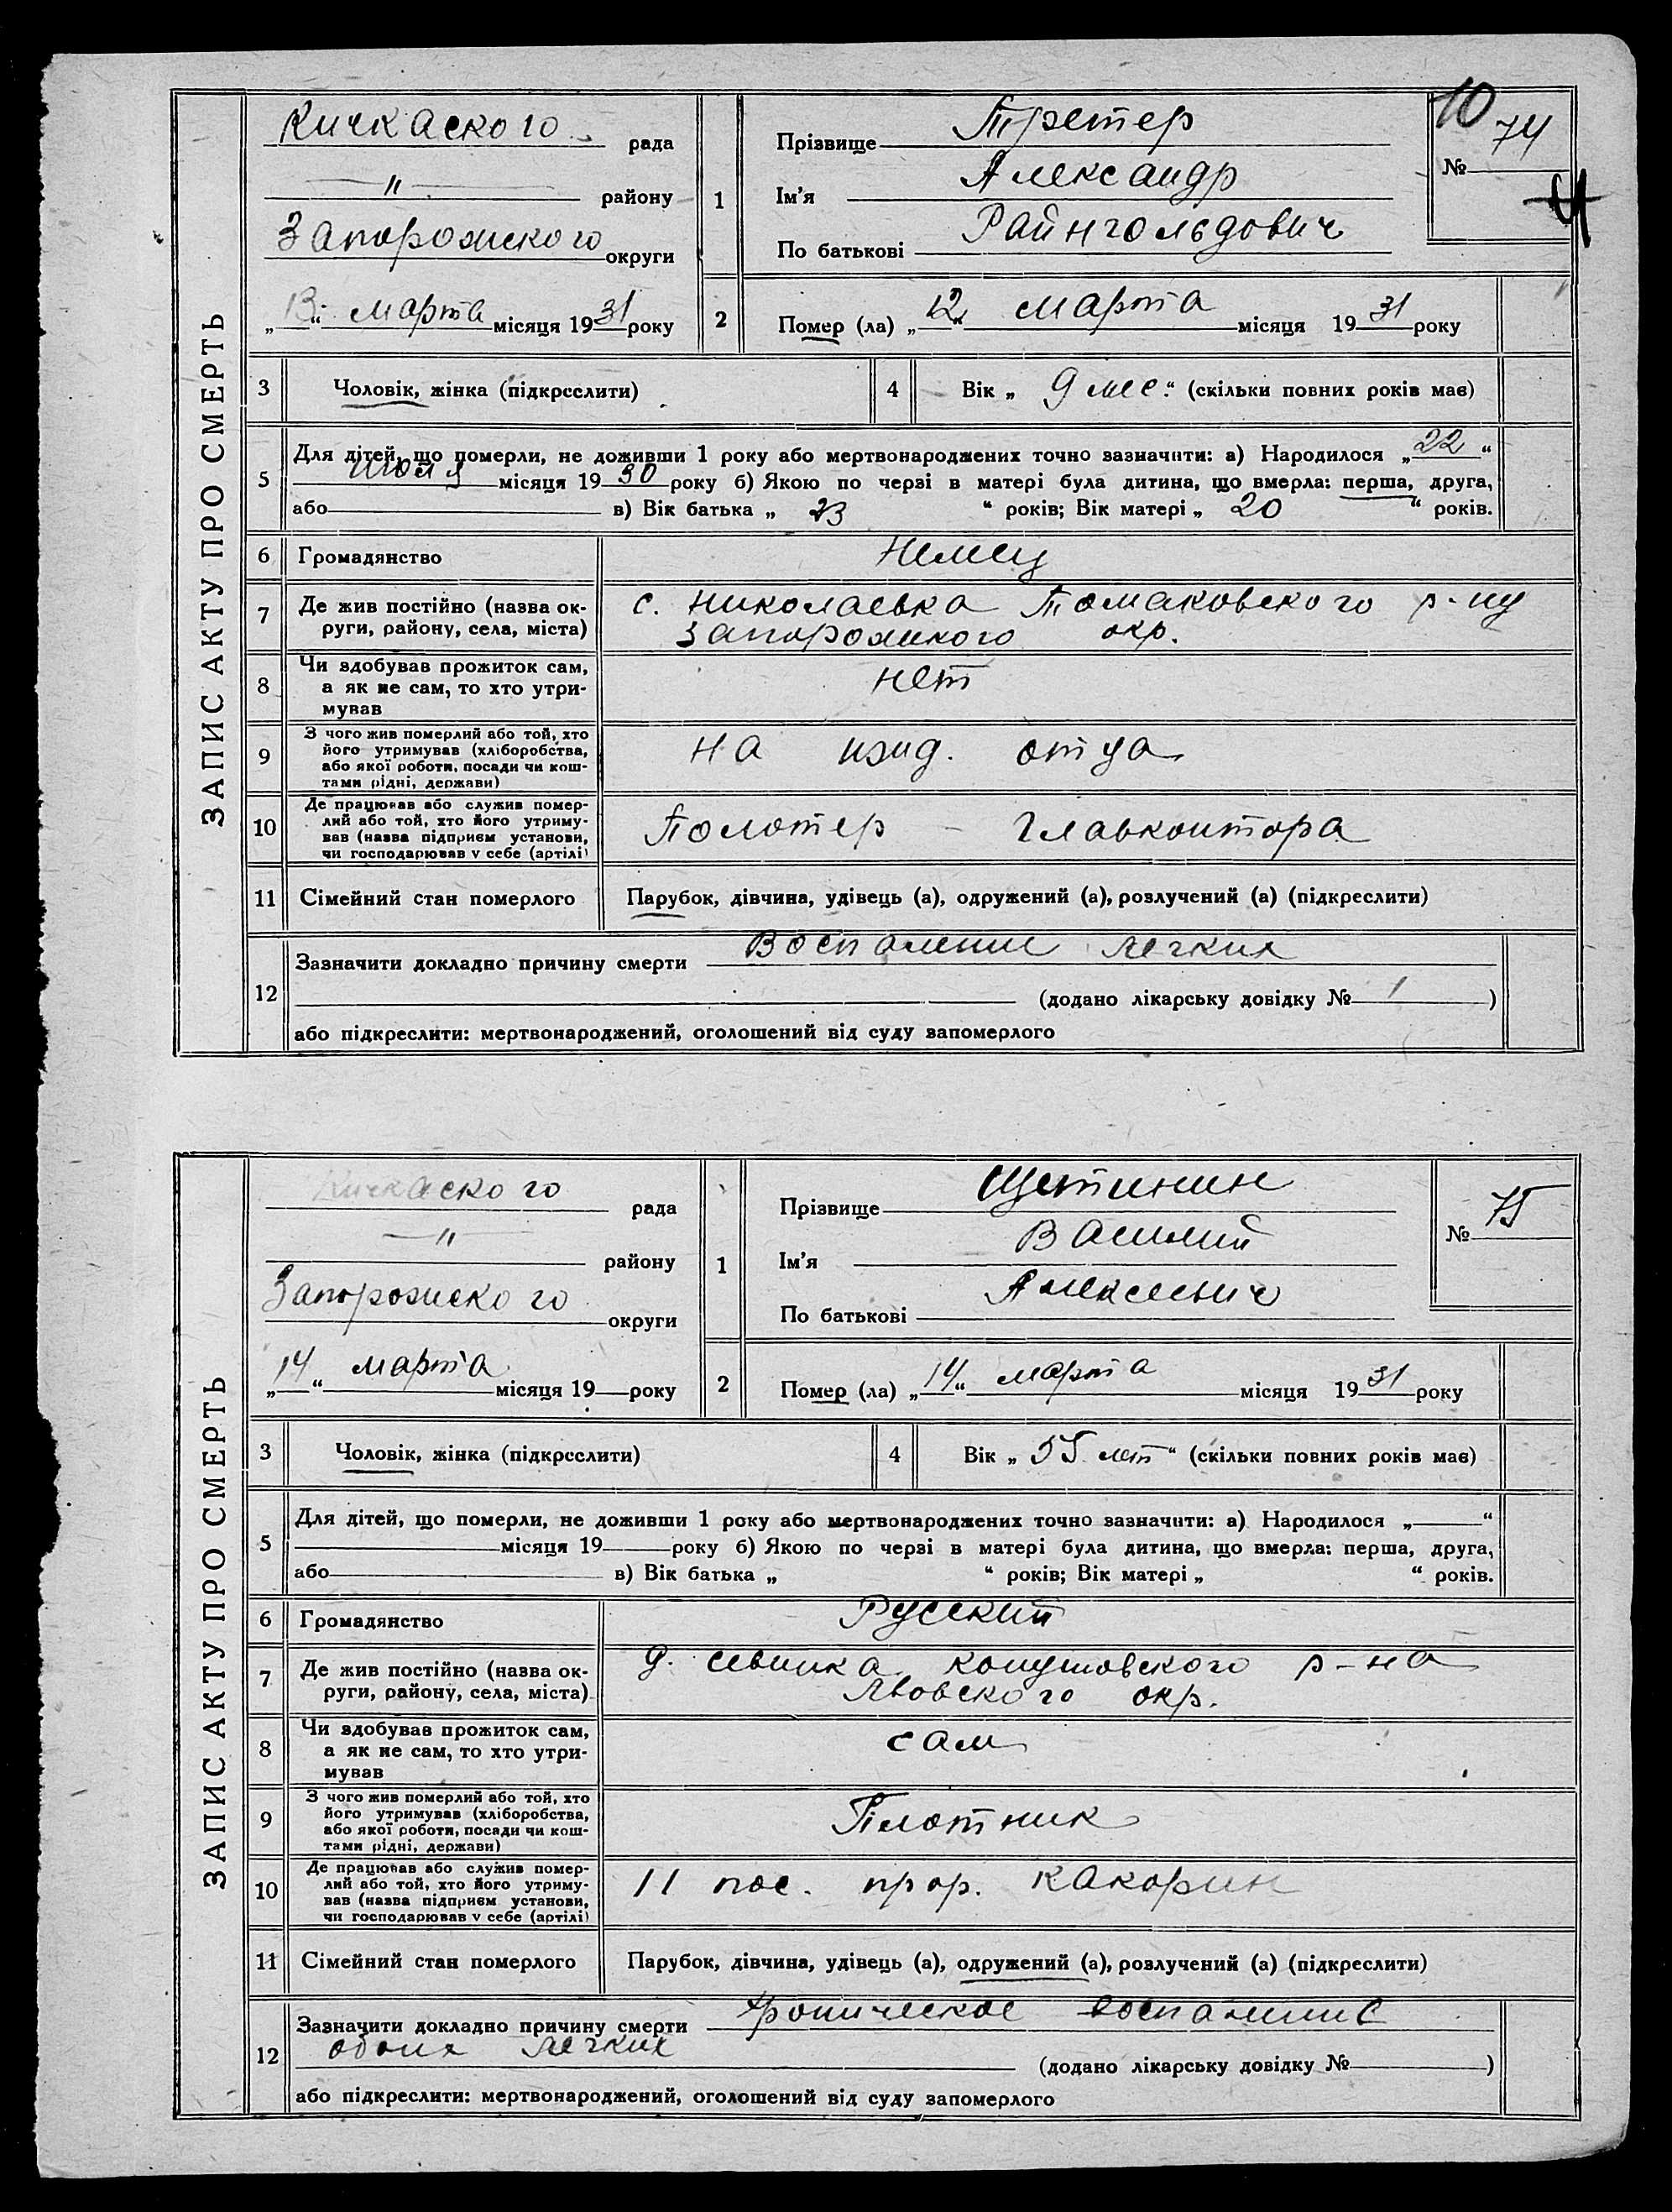 ЗАПИС АКТУ ПРО СМЕРТЬ
Кичкаского рада
—"— району
Запорожского округи
„13“ марта місяця 1931 року
1
Прізвище Третер
Ім'я Александр
По батькові Райнгольдович
10
№ 74
4
2
Помер (ла) „12“ марта місяця 1931 року
3 Чоловік, жінка (підкреслити)
4 Вік „9 мес.“ (скільки повних років має)
5 Для дітей, що померли, не доживши 1 року або мертвонароджених точно зазначити: а) Народилося „22“
июля місяця 1930 року б) Якою по черзі в матері була дитина, що вмерла: перша, друга,
або в) Вік батька „23“ років; Вік матері „20“ років.
6 Громадянство Немец
7 Де жив постійно (назва ок-
руги, району, села, міста)
с. Николаевка Томаковского р-ну
Запорожского окр.
8 Чи здобував прожиток сам,
а як не сам, то хто утри-
мував
нет
9 З чого жив померлий або той, хто
його утримував (хліборобства,
або якої роботи, посади чи кош-
тами рідні, держави)
на ижд. отца
10 Де працював або служив помер-
лий або той, хто його утриму-
вав (назва підприєм установи,
чи господарював у себе (артілі)
Полотер - Главконтора
11 Сімейний стан померлого Парубок, дівчина, удівець (а), одружений (а), розлучений (а) (підкреслити)
12 Зазначити докладно причину смерти Воспаление легких
(додано лікарську довідку № )
або підкреслити: мертвонароджений, оголошений від суду запомерлого
ЗАПИС АКТУ ПРО СМЕРТЬ
Кичкаского рада
—"— району
Запорожского округи
„14“ марта місяця 19 року
1
Прізвище Щетинин
Ім'я Василий
По батькові Алексеевич
№ 75
2
Помер (ла) „14“ марта місяця 1931 року
3 Чоловік, жінка (підкреслити)
4 Вік „55 лет“ (скільки повних років має)
5 Для дітей, що померли, не доживши 1 року або мертвонароджених точно зазначити: а) Народилося „ “
місяця 19 року б) Якою по черзі в матері була дитина, що вмерла: перша, друга,
або в) Вік батька „ “ років; Вік матері „ “ років.
6 Громадянство Русский
7 Де жив постійно (назва ок-
руги, району, села, міста)
д. р-на
Львовского окр.
8 Чи здобував прожиток сам,
а як не сам, то хто утри-
мував
сам
9 З чого жив померлий або той, хто
його утримував (хліборобства,
або якої роботи, посади чи кош-
тами рідні, держави)
Плотник
10 Де працював або служив помер-
лий або той, хто його утриму-
вав (назва підприєм установи,
чи господарював у себе (артілі)
11 пос. прор. Какорин
11 Сімейний стан померлого Парубок, дівчина, удівець (а), одружений (а), розлучений (а) (підкреслити)
12 Зазначити докладно причину смерти Хроническое воспаление
обоих легких
(додано лікарську довідку № )
або підкреслити: мертвонароджений, оголошений від суду запомерлого